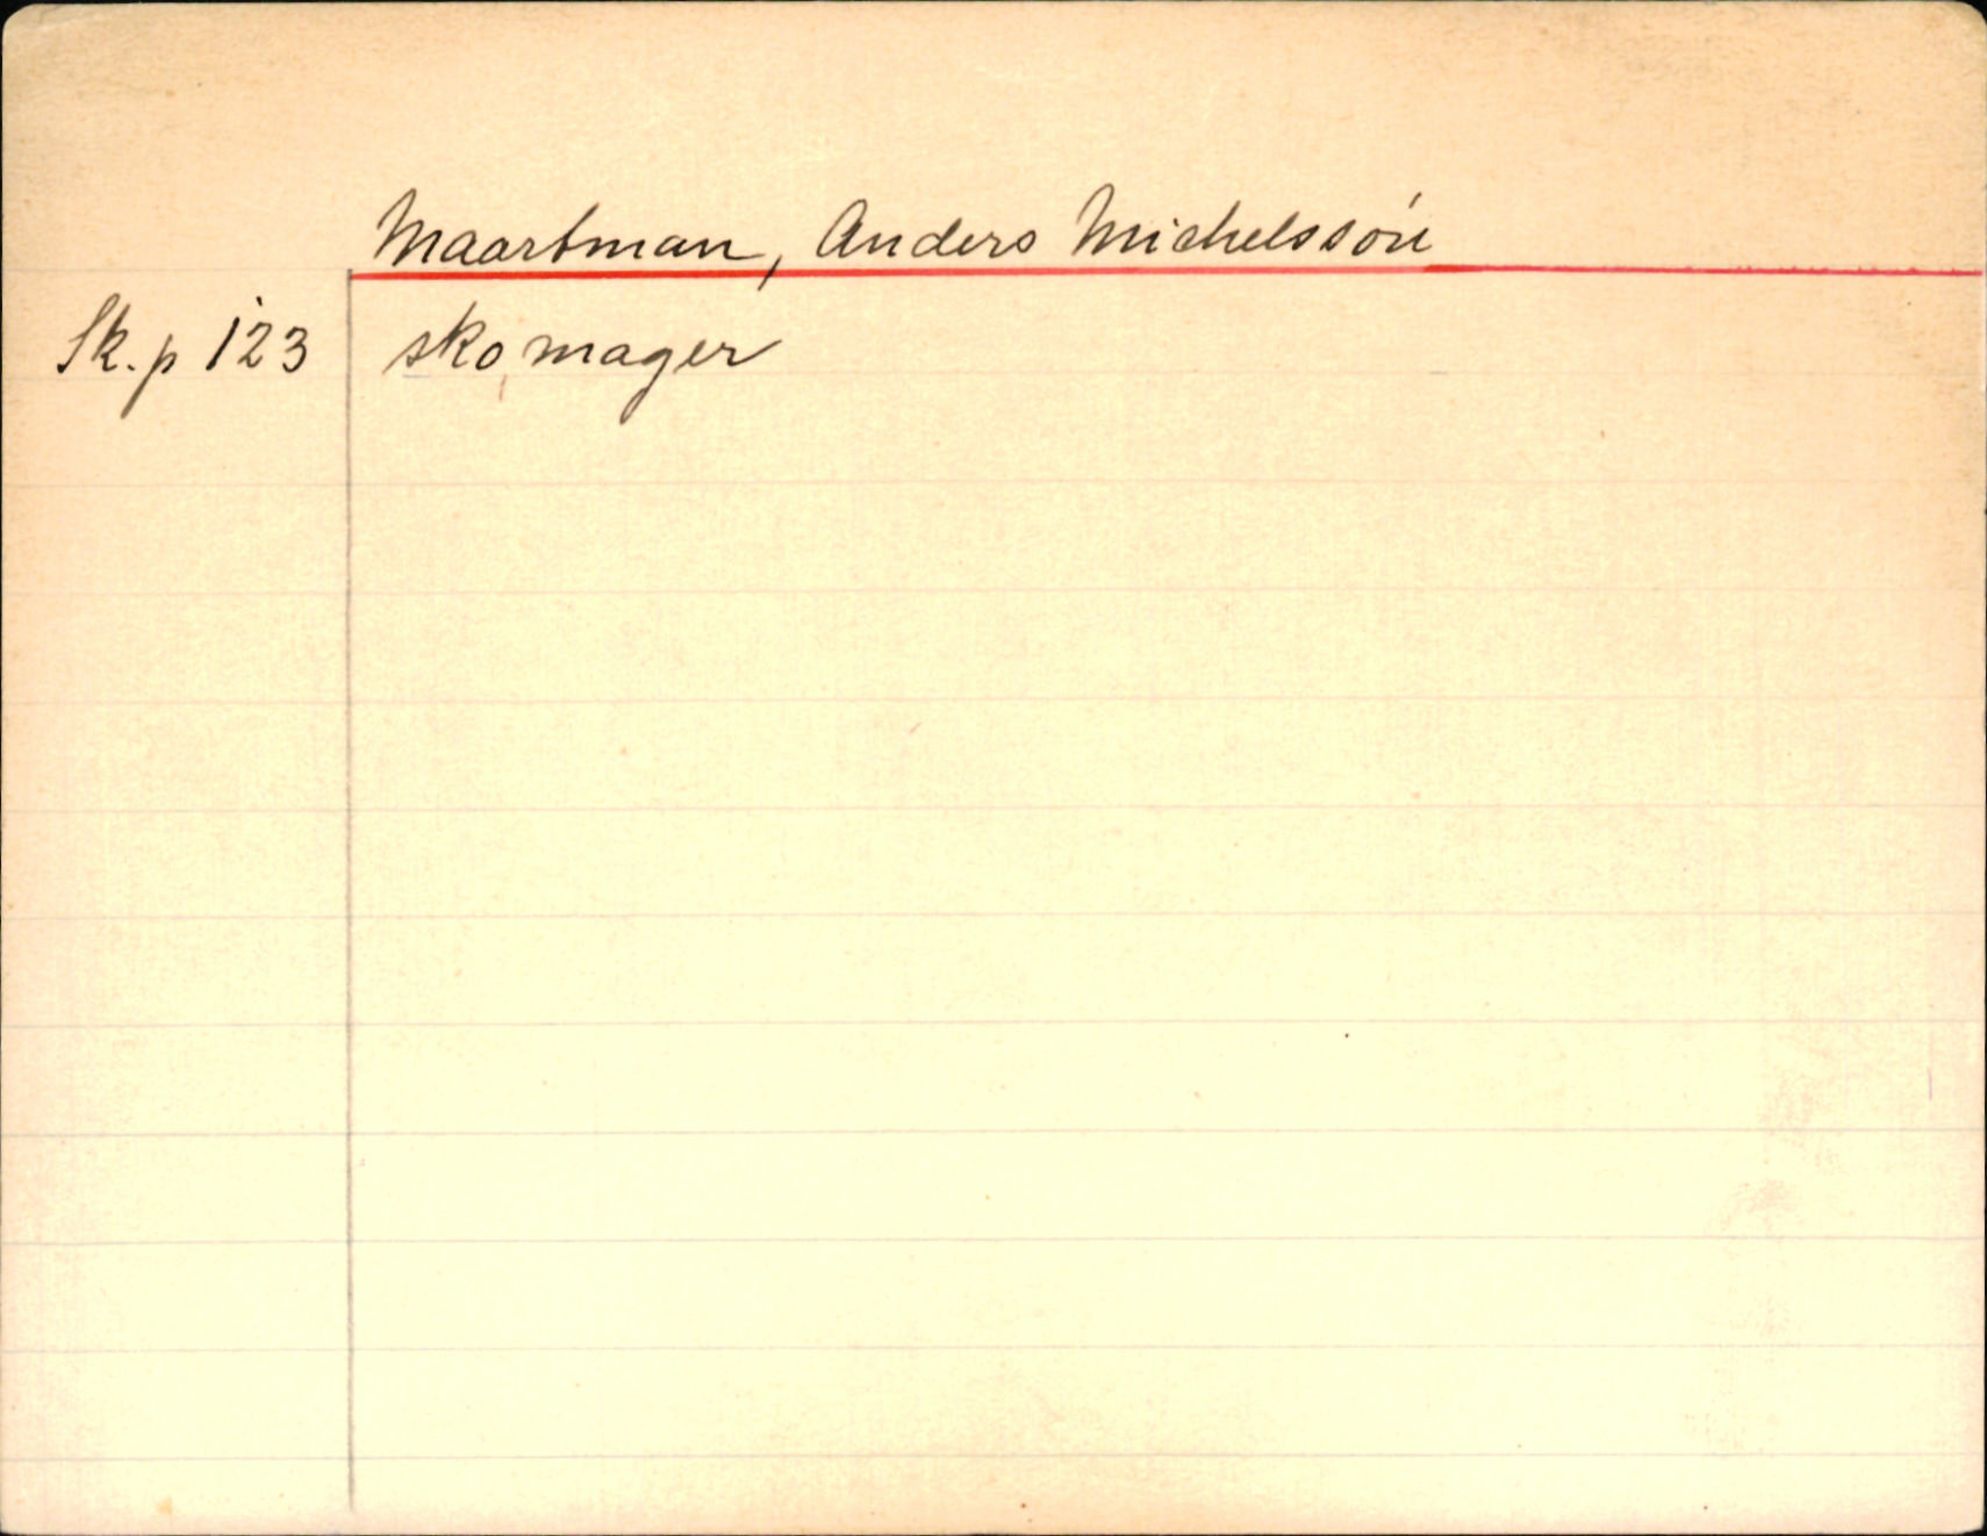 Maartman, Anders Michelssón
Sk. p 123 skomager